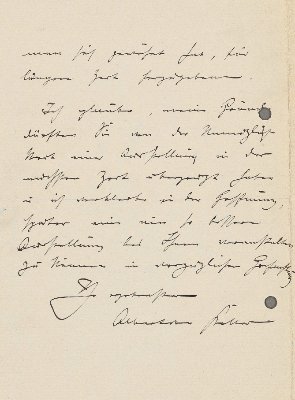 man sich gewöhnt hat, für
längere Zeit herzugeben.
Ich glaube, meine Gründe
dürften Sie von der Unmöglich
keit einer Ausstellung in der
nächsten Zeit überzeugt haben
u. ich verbleibe in der Hoffnung,
später eine um so bessere
Ausstellung bei Ihnen veranstalten
zu können in vorzüglicher Hochachtung
Ihr ergebenster
Keller